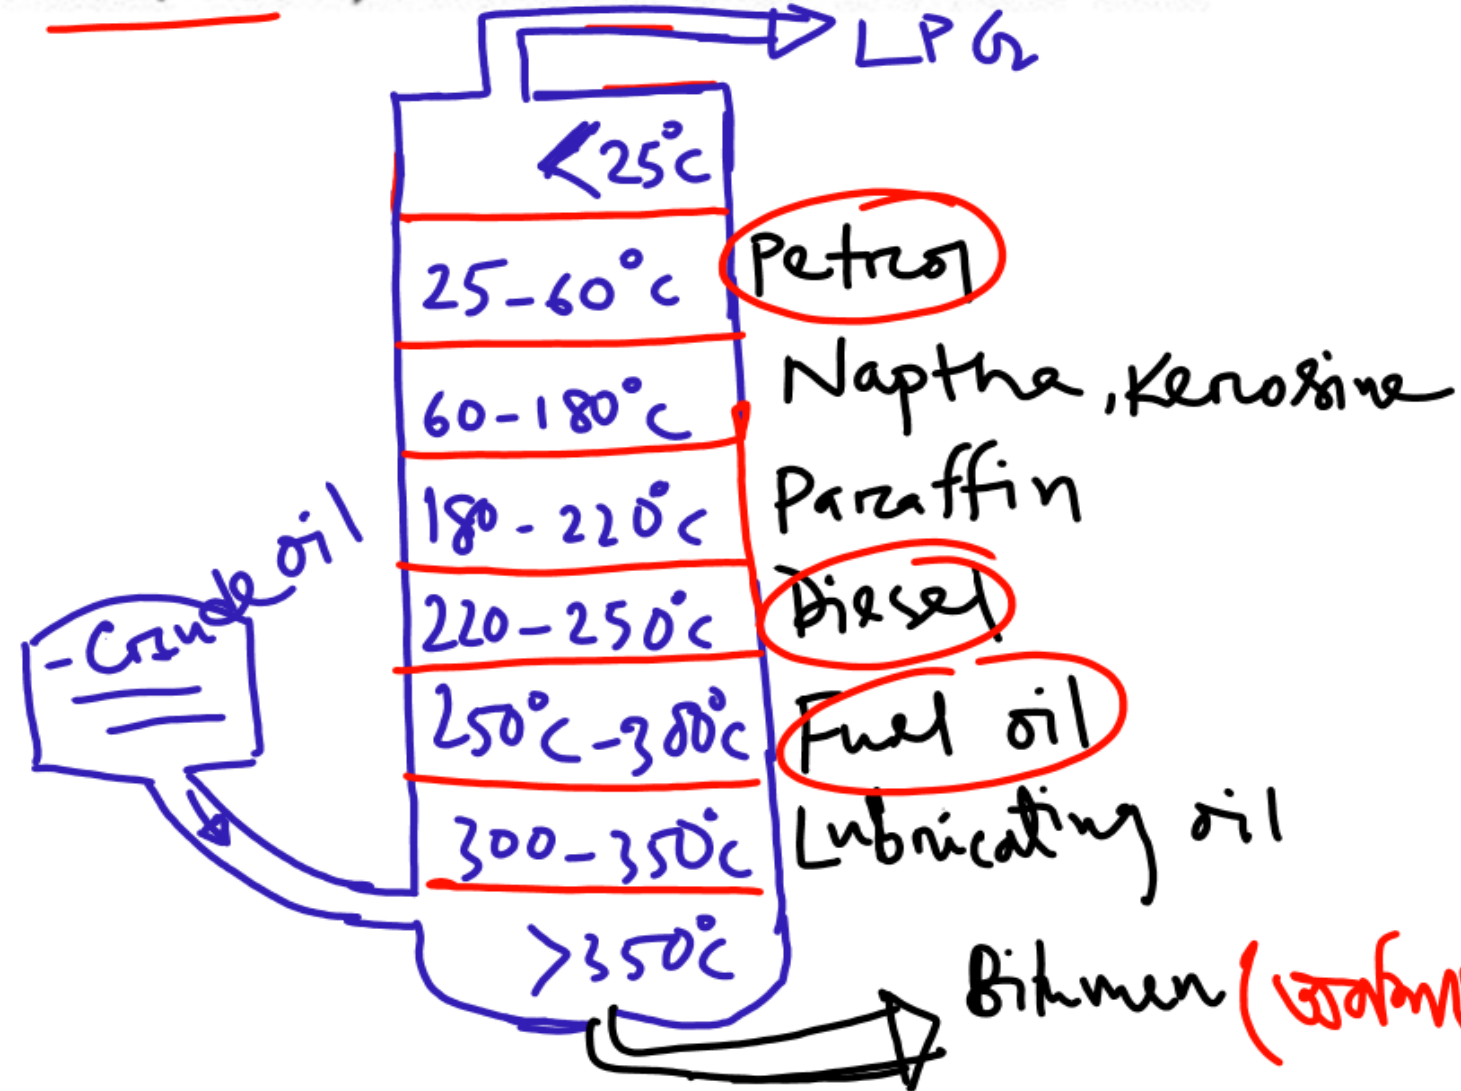 LPG
<25°C
25-60°C Petrol
60-180°C Naptha, Kerosine
180-220°C Paraffin
220-250°C Diesel
250°C-300°C Fuel oil
300-350°C Lubricating oil
>350°C
Bitumen (
-Crude oil